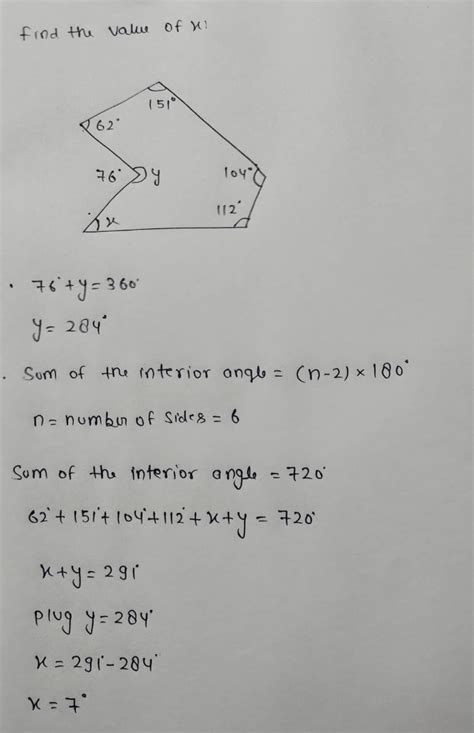 find the value of x:
151°
62°
76° y 104°
112°
x
• 76° + y = 360°
y = 284°
. Sum of the interior angle = (n-2) × 180°
n = number of sides = 6
Sum of the interior angle = 720°
62° + 151° + 104° + 112° + x + y = 720°
x + y = 291°
plug y = 284°
x = 291° - 284°
x = 7°